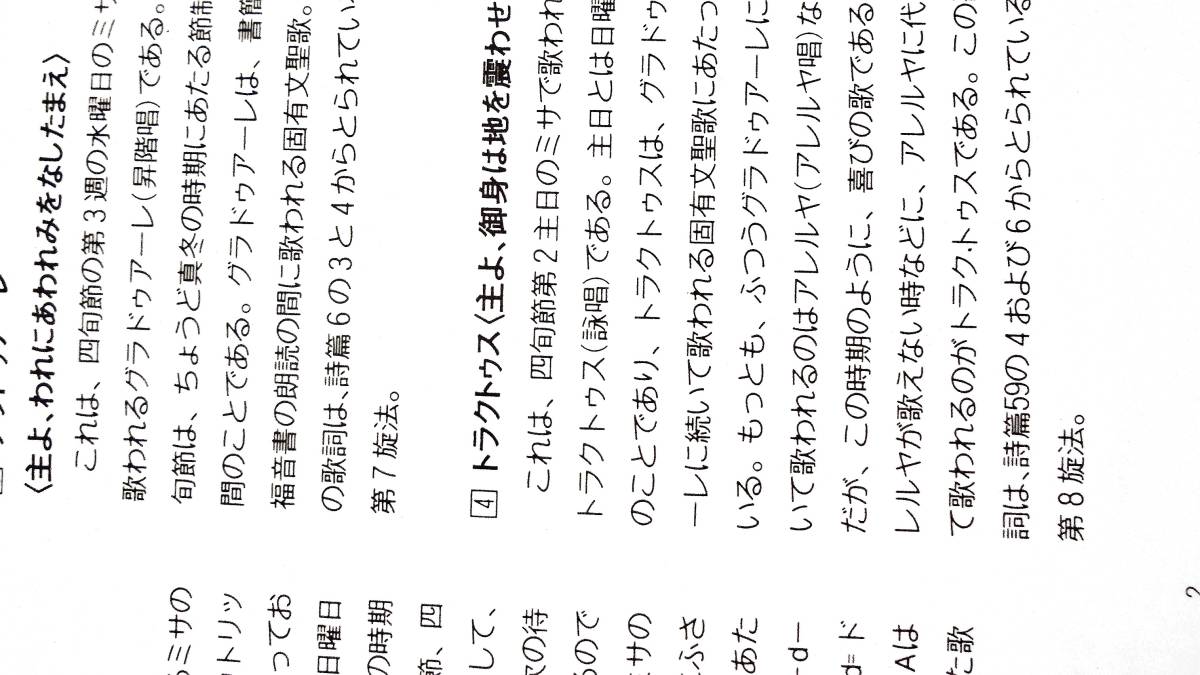 ミサの
トリッ
ってお
日曜日
の時期
節、四
して、
の待
ので
サの
ふさ
あた
d−
d=ド
Aは
た歌
〈主よ、われにあわれみをなしたまえ〉
これは、四旬節の第3週の水曜日のミサ
歌われるグラドゥアーレ(昇階唱)である。
旬節は、ちょうど真冬の時期にあたる節制
間のことである。グラドゥアーレは、書簡
福音書の朗読の間に歌われる固有文聖歌。
の歌詞は、詩篇6の3と4からとられてい
第7旋法。
4 トラクトゥス〈主よ、御身は地を震わせ
これは、四旬節第2主日のミサで歌われ
トラクトゥス(詠唱)である。主日とは日曜
のことであり、トラクトゥスは、グラドゥ
ーレに続いて歌われる固有文聖歌にあたっ
いる。もっとも、ふつうグラドゥアーレに
いて歌われるのはアレルヤ(アレルヤ唱)な
だが、この時期のように、喜びの歌である
レルヤが歌えない時などに、アレルヤに代
て歌われるのがトラクトゥスである。この
詞は、詩篇59の4および6からとられている
第8旋法。